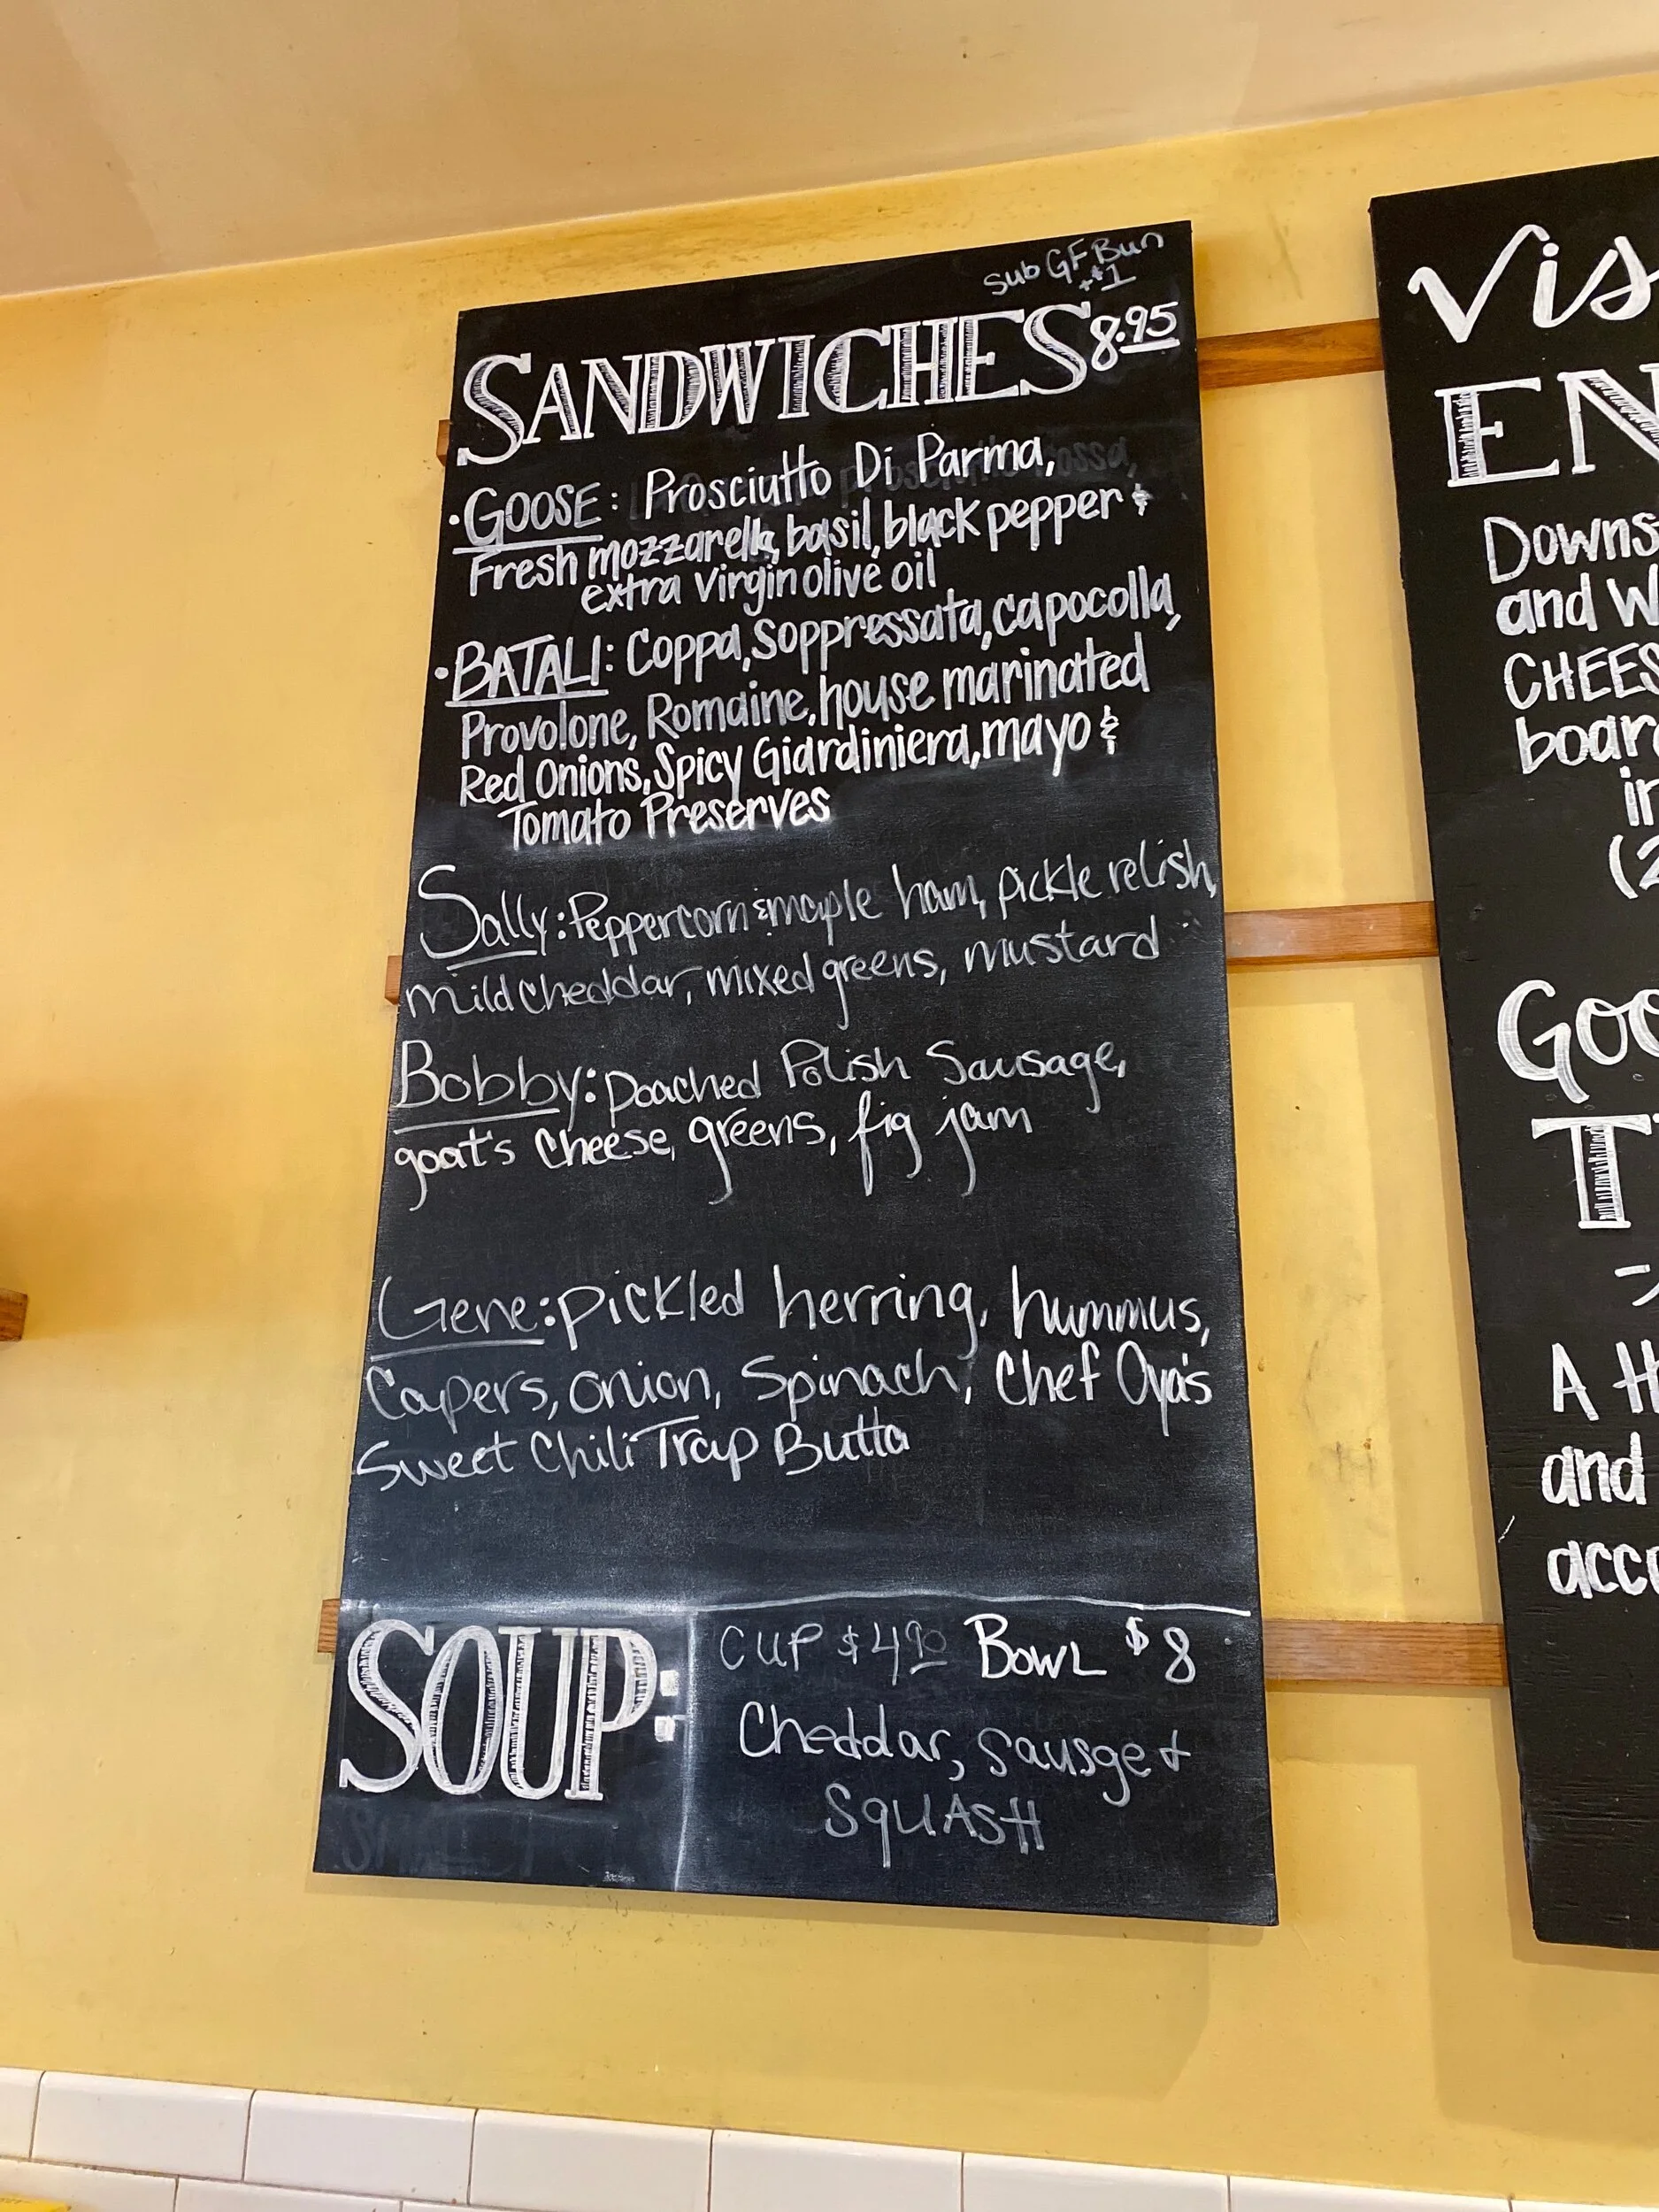 Sub GF Bun
+$1
SANDWICHES 8.95
• GOOSE: Prosciutto Di Parma,
Fresh mozzarella, basil, black pepper &
extra virgin olive oil
• BATALI: Coppa, Soppressata, capocolla,
Provolone, Romaine, house marinated
Red Onions, Spicy Giardiniera, mayo &
Tomato Preserves
Sally: Peppercorn & maple ham, pickle relish,
mild cheddar, mixed greens, mustard
Bobby: poached Polish Sausage,
goat's cheese, greens, fig jam
Gene: pickled herring, hummus,
Capers, onion, Spinach, Chef Oya's
Sweet Chili Trap Butta
SOUP:
CUP $4.90 BOWL $8
Cheddar, Sausge &
SQUASH
Vis
EN
Downs
and W
CHEES
board
in
(2
GOO
T
A H
and
acco